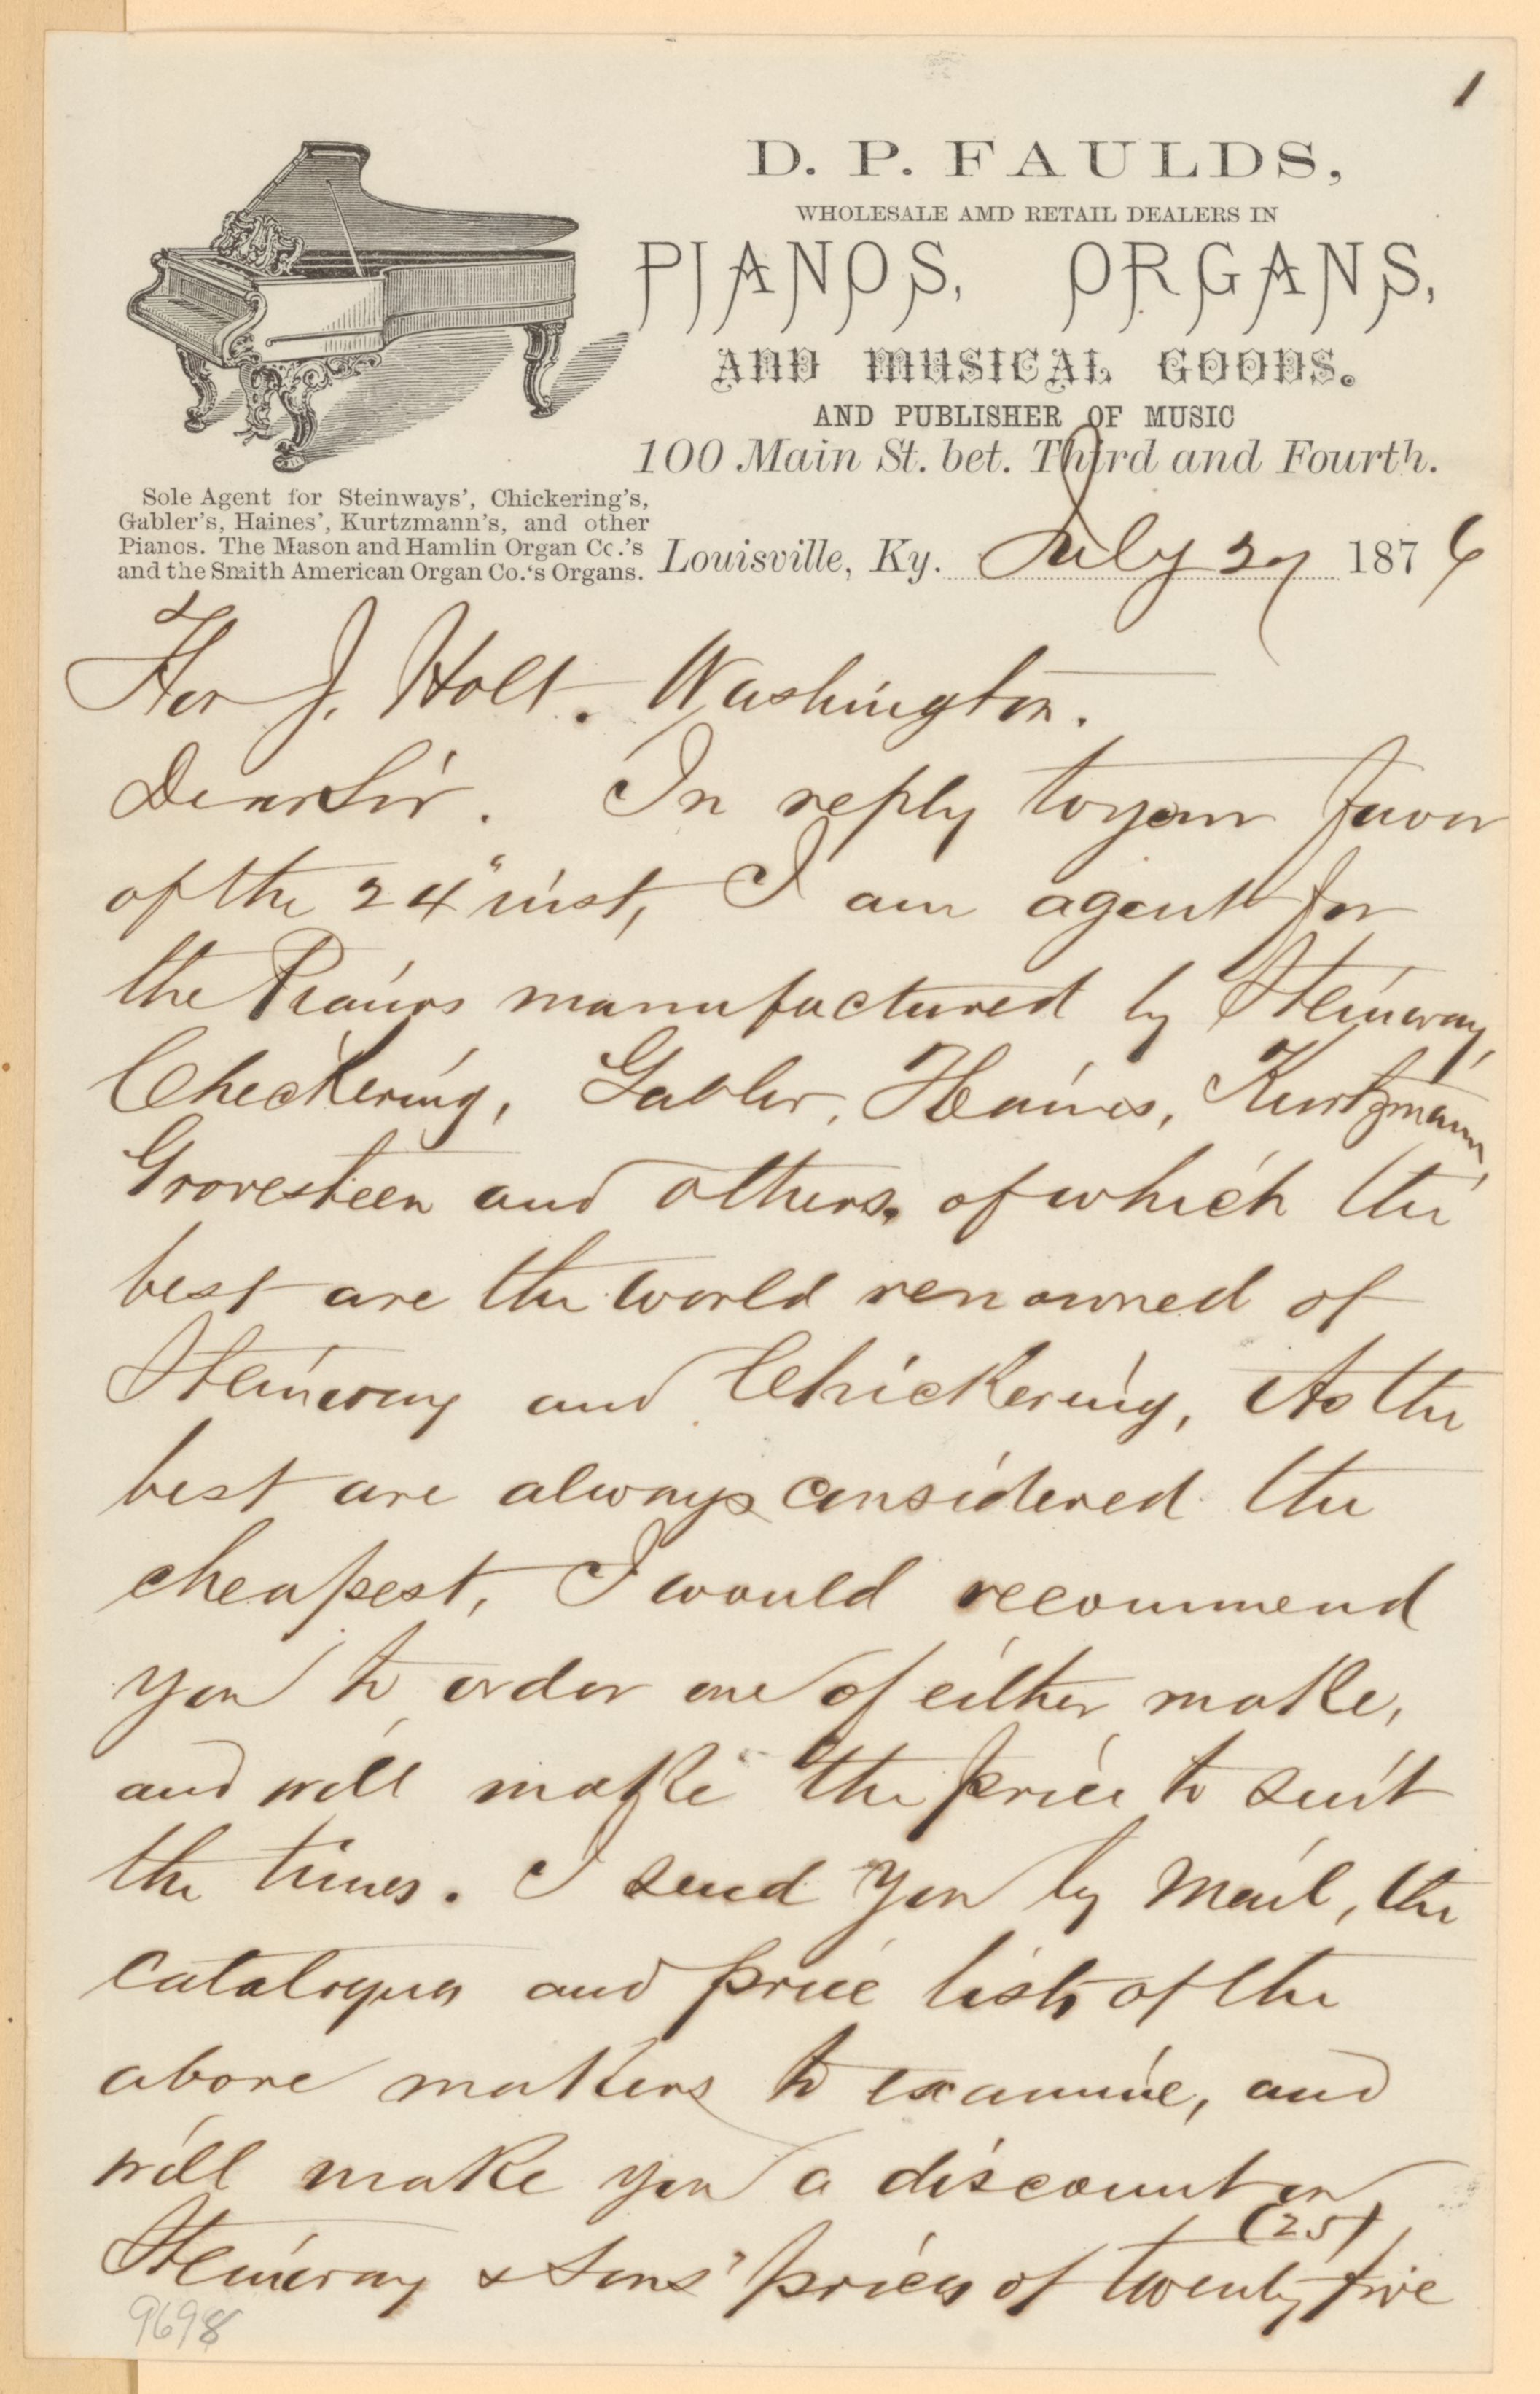 1
D. P. FAULDS,
WHOLESALE AMD RETAIL DEALERS IN
PIANOS, ORGANS,
AND MUSICAL GOODS.
AND PUBLISHER OF MUSIC
100 Main St. bet. Third and Fourth.
Sole Agent for Steinways', Chickering's,
Gabler's, Haines', Kurtzmann's, and other
Pianos. The Mason and Hamlin Organ Co.'s
and the Smith American Organ Co.'s Organs.
Louisville, Ky. July 27 1876
Hon J. Holt. Washington.
Dear Sir. In reply to your favor
of the 24" inst, I am agent for
the Pianos manufactured by Steinway,
Checkering, Gabler, Haines, Kurtzmann,
Grovesteen and others. of which the
best are the world renowned of
Steinway and Chickering, As the
best are always considered the
cheapest, I would recommend
you to order one of either make,
and will make the price to suit
the times. I send you by mail, the
catalogues and price lists of the
above makers to examine, and
will make you a discount on
Steinway & Sons' prices of twenty five
(25)
9698